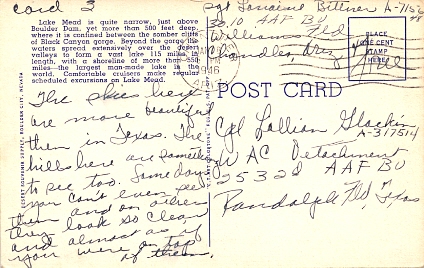 card 3
Lake Mead is quite narrow, just above
Boulder Dam, yet more than 500 feet deep
where it is confined between the somber cliffs
of Black Canyon gorge. Beyond the gorge the
waters spread extensively over the desert
valleys to form a vast lake 115 miles in
length, with a shoreline of more than 550
miles—the largest man-made lake in the
world. Comfortable cruisers make regular
scheduled excursions on Lake Mead.
The skies here
are more beautiful
then in Texas. The
hills here are something
to see too. Some days
you can't even see
them and on others
they look so clear
and almost as if
you were on top
of them.
DESERT SOUVENIR SUPPLY, BOULDER CITY, NEVADA
Sgt Lorraine Bittner A-715
3010 AAF BU
Williams Fld
Chandler, Ariz
PM
1946
Free
PLACE
ONE CENT
STAMP
HERE
POST CARD
Cpl Lillian Glackin
A-317514
W AC Detachment
2532d AAF BU
Randolph Fld, Texas